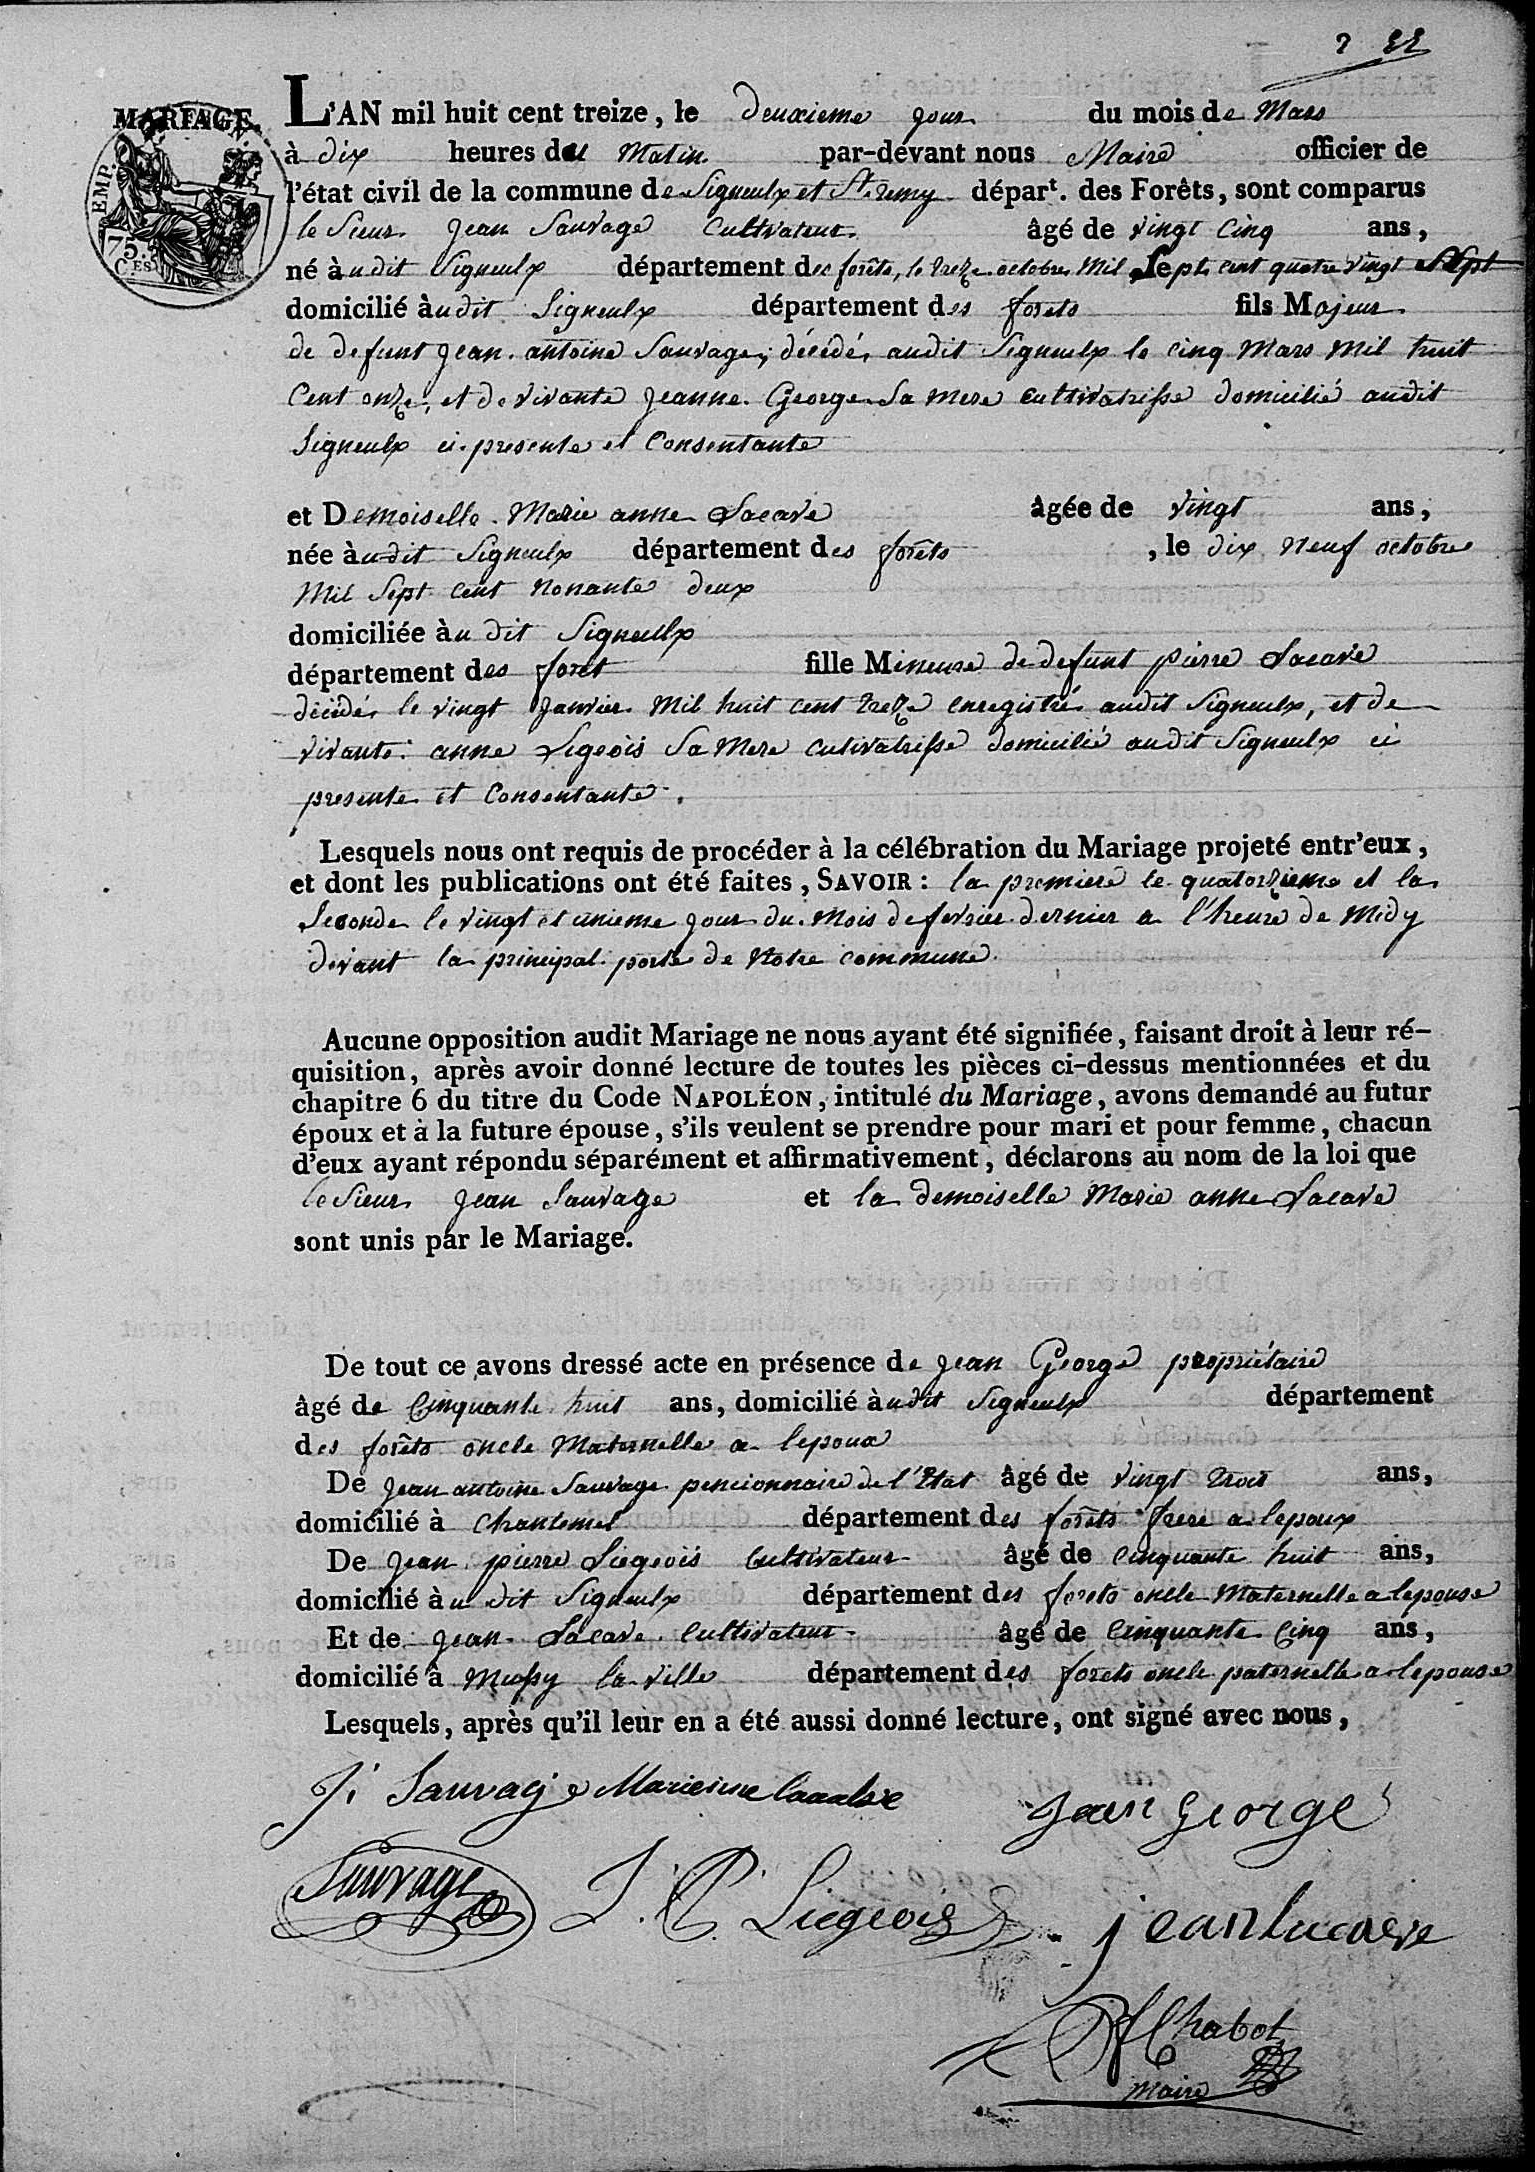 2 22
MARIAGE.
EMP.
75.
C.ES
L'AN mil huit cent treize, le deuxieme jour du mois de Mars
à dix heures du Matin par-devant nous Maire officier de
l'état civil de la commune de Signeulx et St. remy départ. des Forêts, sont comparus
le Sieur Jean Sauvage Cultivateur. âgé de vingt cinq ans,
né àudit Signeulx département des forêts, le treze octobre Mil Sept cent quatre vingt Sept
domicilié àudit Signeulx département des forets fils Majeur
de defunt Jean antoine Sauvage, décédé audit Signeulx le cinq Mars Mil huit
Cent onze, et de vivante Jeanne George Sa Mere cultivatrisse domicilié audit
Signeulx ci presente et Consentante
et Demoiselle Marie anne Lacave âgée de vingt ans,
née àudit Signeulx département des forêts, le dix Neuf octobre
Mil Sept cent Nonante deux
domiciliée àu dit Signeulx
département des foret fille Mineure de defunt pierre Lacave
décédé le vingt Janvier Mil huit cent treze enregistré audit Signeulx, et de
vivante anne Ligeois Sa Mere cutivatrisse domicilié audit Signeulx ci
presente et Consentante.
Lesquels nous ont requis de procéder à la célébration du Mariage projeté entr'eux,
et dont les publications ont été faites, SAVOIR: la premiere le quatorzieme et la
Seconde le vingt et unieme jour du Mois de fevrier dernier a l'heure de Midy
devant la principal porte de Notre commune.
Aucune opposition audit Mariage ne nous ayant été signifiée, faisant droit à leur ré-
quisition, après avoir donné lecture de toutes les pièces ci-dessus mentionnées et du
chapitre 6 du titre du Code NAPOLÉON, intitulé du Mariage, avons demandé au futur
époux et à la future épouse, s'ils veulent se prendre pour mari et pour femme, chacun
d'eux ayant répondu séparément et affirmativement, déclarons au nom de la loi que
le Sieur Jean Sauvage et la demoiselle Marie anne Lacave
sont unis par le Mariage.
De tout ce avons dressé acte en présence de Jean George propriétaire
âgé de Cinquante huit ans, domicilié àudit Signeulx département
des forêts oncle Maternelle a lepoux
De Jean antoine Sauvage pencionnaire de l'Etat âgé de vingt trois ans,
domicilié à Chantemel département des forêts frere a lepoux
De Jean pierre Liegeois Cultivateur âgé de cinquante huit ans,
domicilié àu dit Signeulx département des forets oncle Maternelle a lepouse
Et de Jean Lacave Cultivateur âgé de Cinquante Cinq ans,
domicilié à Mussy la ville département des forets oncle paternelle a lepouse
Lesquels, après qu'il leur en a été aussi donné lecture, ont signé avec nous,
Sauvage jean george
Sauvage J. P. Liegeois jean lucave
Chabot
Maire